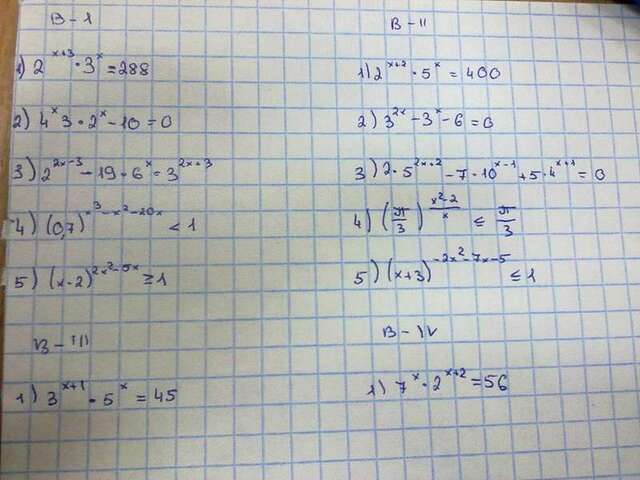 В-I
1) 2^{x+3} · 3^x = 288
2) 4^x 3 · 2^x - 10 = 0
3) 2^{2x-3} - 19 · 6^x = 3^{2x+3}
4) (0,7)^{x^3 - x^2 - 20x} < 1
5) (x-2)^{2x^2-5x} ≥ 1
В-III
1) 3^{x+1} · 5^x = 45
В-II
1) 2^{x+2} · 5^x = 400
2) 3^{2x} - 3^x - 6 = 0
3) 2 · 5^{2x+2} - 7 · 10^{x-1} + 5 · 4^{x+1} = 0
4) (π/3)^{(x^2-2)/x} ≤ π/3
5) (x+3)^{-2x^2-7x-5} ≤ 1
В-IV
1) 7^x · 2^{x+2} = 56